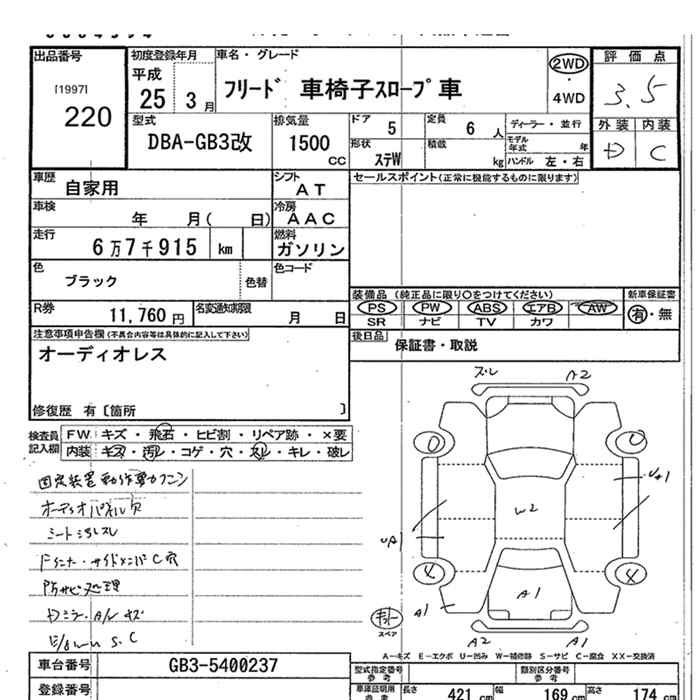 出品番号 初度登録年月 車名・グレード 2WD 評価点
[1997] 平成 フリード 車椅子スロープ車 ・ 3.5
220 25 3月 4WD 外装 内装
型式 排気量 ドア 5 定員 6人 ディーラー・並行 D C
DBA-GB3改 1500cc 形状 ステW 積載 kg モデル年式 年
ハンドル 左・右
車歴 自家用 シフト AT セールスポイント(正常に機能するものに限ります)
車検 年 月( 日) 冷房 AAC
走行 6万7千915 km 燃料 ガソリン
色 ブラック 色替 色コード
装備品 (純正品に限り○をつけてください) 新車保証書
R券 11,760円 名変通知期限 月 日 PS PW ABS エアB AW 有・無
SR ナビ TV カワ
注意事項申告欄(不具合内容等は具体的に記入して下さい) 後日品 保証書・取説
オーディオレス
修復歴 有〔箇所 〕
検査員記入欄 FW キズ・飛石・ヒビ割・リペア跡・×要
内装 キズ・汚レ・コゲ・穴・スレ・キレ・破レ
ズレ A2
W2
固定装置
オーディオパネル穴
シート汚レスレ
防サビ処理
A1
A1
スペア
A2 A1
A-キズ E-エクボ U-凹み W-補修跡 S-サビ C-腐食 XX-交換済
車台番号 GB3-5400237 型式指定番号 参考 類別区分番号 参考
登録番号 車庫証明用 参考 長さ 421 cm 幅 169 cm 高さ 174 cm